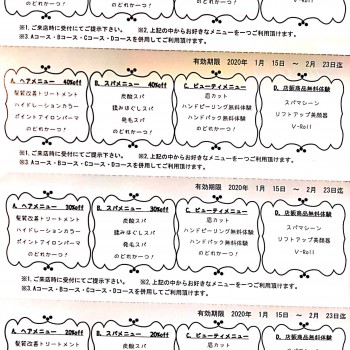 のどれか一つ！ のどれか一つ！ ハンドパック無料体験 V-Roll
※1、ご来店時に受付にてご提示下さい。 ※2、上記の中からお好きなメニューを一つご利用頂けます。
※3、Aコース・Bコース・Cコース・Dコースを併用してご利用頂けます。
有効期限 2020年 1月 15日 ～ 2月 23日迄
A、ヘアメニュー 40%off
髪質改善トリートメント
ハイドレーションカラー
ポイントアイロンパーマ
のどれか一つ！
B、スパメニュー 40%off
炭酸スパ
揉みほぐしスパ
発毛スパ
のどれか一つ！
C、ビューティメニュー
眉カット
ハンドピーリング無料体験
ハンドパック無料体験
のどれか一つ！
D、店販商品無料体験
スパマシーン
リフトアップ美顔器
V-Roll
※1、ご来店時に受付にてご提示下さい。 ※2、上記の中からお好きなメニューを一つご利用頂けます。
※3、Aコース・Bコース・Cコース・Dコースを併用してご利用頂けます。
有効期限 2020年 1月 15日 ～ 2月 23日迄
A、ヘアメニュー 30%off
髪質改善トリートメント
ハイドレーションカラー
ポイントアイロンパーマ
のどれか一つ！
B、スパメニュー 30%off
炭酸スパ
揉みほぐしスパ
発毛スパ
のどれか一つ！
C、ビューティメニュー
眉カット
ハンドピーリング無料体験
ハンドパック無料体験
のどれか一つ！
D、店販商品無料体験
スパマシーン
リフトアップ美顔器
V-Roll
※1、ご来店時に受付にてご提示下さい。 ※2、上記の中からお好きなメニューを一つご利用頂けます。
※3、Aコース・Bコース・Cコース・Dコースを併用してご利用頂けます。
有効期限 2020年 1月 15日 ～ 2月 23日迄
A、ヘアメニュー 20%off
髪質改善トリートメント
B、スパメニュー 20%off
炭酸スパ
C、ビューティメニュー
眉カット
D、店販商品無料体験
スパマシーン